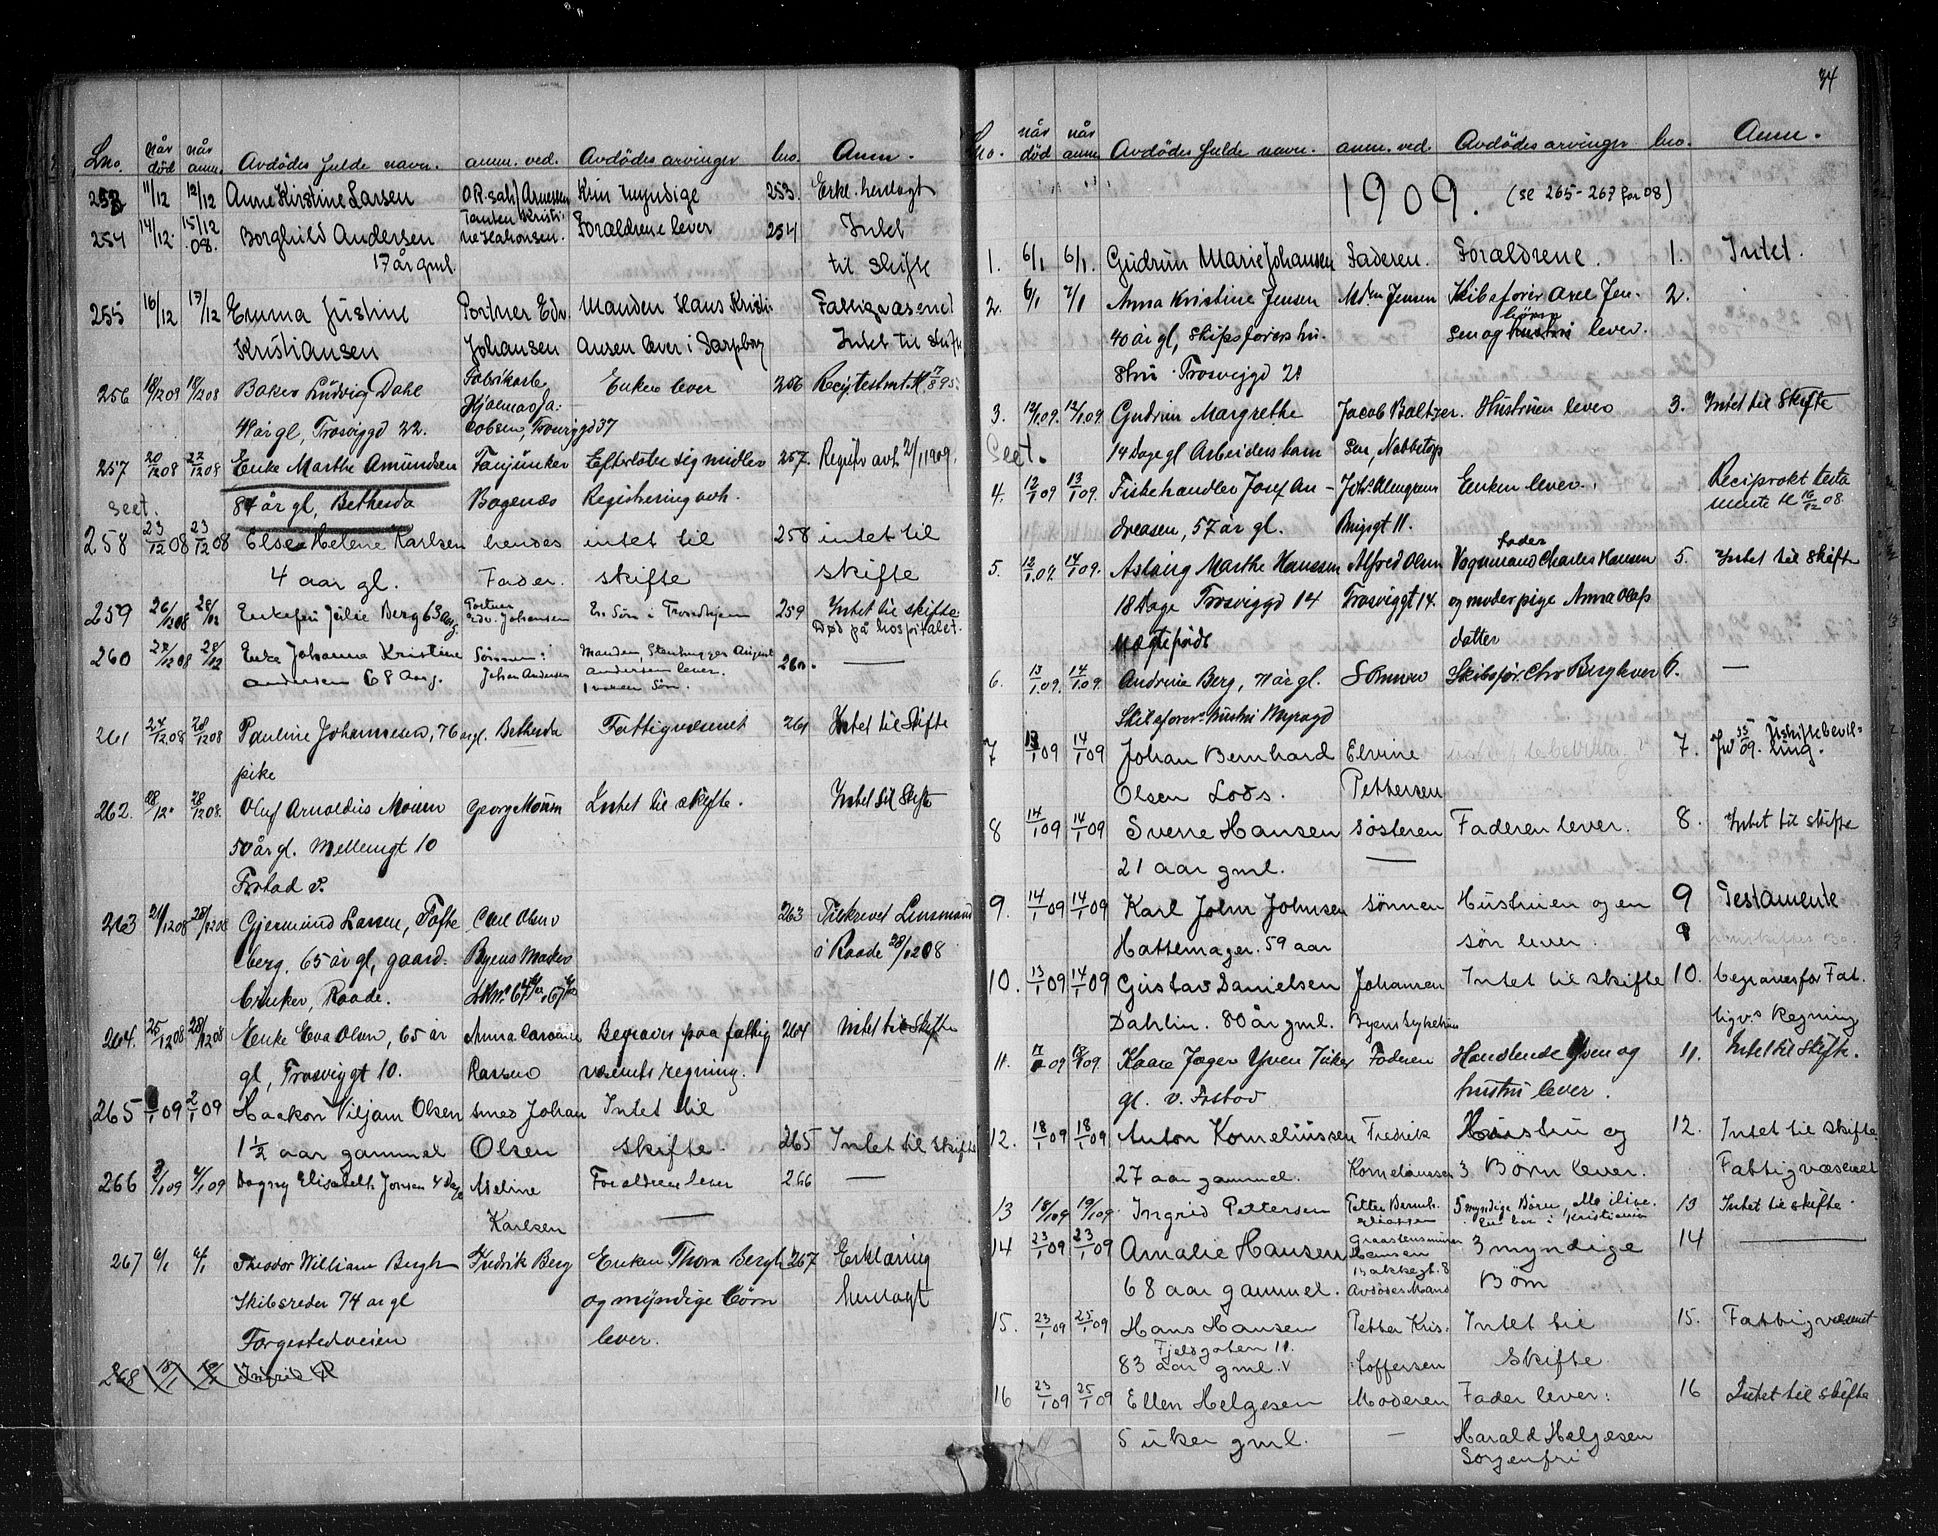 Lno. når død når anm. Avdödes fulde navn. anm. ved. Avdödes arvinger lno. Anm.
253 11/12 12/12 Anne Kirstine Larsen O.R.sahf Arnesen Kun myndige 253. Erkl. henlagt
254 14/12. 15/12 08. Borghild Andersen Tanten Kristine Hakonsen. Forældrene lever 254 Intet
17 år gml. til skifte
255 16/12 19/12 Emma Justine Portner Edv. Manden Hans Kristi- Fattigvæsenet
Kristiansen Johansen ansen lever i Sarpborg Intet til skifte
256 18/12 09 18/12 08 Baker Ludvig Dahl Fabrikarb. Hjalmar Ja- Enken lever 256 Recip testmt.
41 år gl, Trosviggd 22. cobsen, Trosviggd 37
257 20/12 08 22/12 08 Enke Marthe Amundsen Fanjunker Efterlater sig midler 257. Registr avh. 2/1 1909.
Seet. 84 år gl, Bethesda Bogenæs Registrering avh.
258 23/12 08 23/12 08 Else Helene Karlsen hendes intet til 258 intet til
4 aar gl. Fader. skifte skifte
259 26/12 08 28/12 Enkefru Julie Berg 63 aar g. Portner Edv. Johansen En Søn i Trondhjem 259 Intet til skifte. Død på hospitalet.
260 27/12 08 28/12 Enke Johanna Kristine Sønnen: Manden, Stenhugger August 260. —
Andersen 68 Aar g. Johan Andersen Andersen lever. 1 voxen Søn.
261 27/12 08 28/12 08 Pauline Johannesen, 76 år gl. Bethesda Fattigvæsenet 261 Intet til Skifte
pike
262. 28/12. 28/12 08. Oluf Arnoldus Moum Georg Moum Intet til skifte. Intet til Skifte
50 år gl. Mellemgt 10
Frstad v.
263 21/12 08 28/12 08 Gjermund Larsen, Tofte Carl Olsen 263 Tilskrevet Lensmand
berg. 65 år gl, gaard- Byens Marker i Raade 28/12 08
bruker, Raade.
264. 25/12 08 28/12 08 Enke Eva Olsen, 65 år Anna Caroline Begraves paa fattig 264 Intet til Skifte
gl, Trosviggt 10. Rassen væsenets regning.
265 /1 09 2/1 09 Haakon Viljam Olsen smed Johan Intet til
1 1/2 aar gammel Olsen skifte. 265 Intet til skifte
266 3/1 09 4/1 09 Dagny Elisabeth Jonsen 4 Dage Adeline Forældrene lever 266 —
Karlsen —
267 6/1 6/1 Theodor William Bergh Fredrik Berg Enken Thora Bergh 267 Erklæring
Skibsreder 74 ar gl og myndige börn henlagt
Torgestedveien lever.
268 18/1 19/1 Ingrid P
34
Lno. når død når anm. Avdödes fulde navn. anm. ved. Avdödes arvinger lno. Anm.
1909. (se 265-267 for 08)
1. 6/1 6/1. Gudrun Marie Johansen Faderen. Forældrene. 1. Intet.
2. 6/1 7/1 Anna Kristine Jensen Mden Jensen Skibsfører Axel Jen- 2.
40 år gl, skipsførers hu- sen og börn hustru lever.
stru Trosviggd 28
3. 12/1 09. 12/1 09 Gudrun Margrethe Jacob Baltzer- Hustruen lever 3. Intet til Skifte
Seet. 14 Dage gl Arbeiders barn sen, Nabbetorp
4. 12/1 09 13/1 09. Fiskehandler Josef An- Joh. Almgren Enken lever. Reciprokt testa
dreasen, 57 år gl. Brugt 11. mente til 16/12 08.
5. 12/1 09. 14/1 09. Aslaug Marthe Hansen Alfred Olsen Fader Vognmand Charles Hansen 5. Intet til Skifte
18 Dage Trosviggd 14 Trosviggt 14. og moder pige Anna Olafs
Uægtefødt datter
6. 13/1 09. 14/1 09. Andrine Berg, 71 år gl. Sönnen Skibsför. Chr Berg lever 6. —
Skibsförer hustru Myragd
7 13/1 09 14/1 09 Johan Bernhard Elvine 7. Jvd 09. Uskiftebevil-
Olsen Lods. Pettersen ling.
8 14/1 09 14/1 09 Sverre Hansen söstere Faderen lever. 8. Intet til skifte
21 aar gml. —
9. 14/1 09 14/1 09 Karl John Johnsen sönnen Hustruen og en 9 Testamente
Hattemager. 59 aar sön lever. 9
10. 13/1 09 14/1 09 Gustav Danielsen Johansen Intet til skifte 10. begraves for Fat-
Dahlin. 80 år gml. Byens sykehus tigv.s Regning
11. 17/1 09 18/1 09. Kaare Jæger Yven 7 uker Faderen Handlende Yven og 11. Intet til Skifte.
gl. v. Frstad hustru lever.
12. 18/1 09 18/1 09 Anton Korneliussen Fredrik Hustru og 12. Intet til skifte.
27 aar gammel. Korneliussen 3 Börn lever. Fattigvæsenet
13 18/1 09 19/1 09 Ingrid Pettersen Petter Bernh. 5 myndige Börn, 13 Intet til skifte.
En bor i Kristiania
14 23/1 09 23/1 09 Amalie Hansen Graastensminer Hansen 3 myndige 14 —
68 aar gammel. Bakkegt. 8 Avdödes Mand Börn
15. 23/1 09 25/1 09 Hans Hansen Petter Kris- Intet til 15. Fattigvæsenet
Fjeldgaten 11.
83 aar gml. v toffersen Skifte
16 23/1 09 25/1 09 Ellen Helgesen Moderen Fader lever: 16 Intet til skifte
5 uker gml. — Harald Helgesen
Sorgenfri